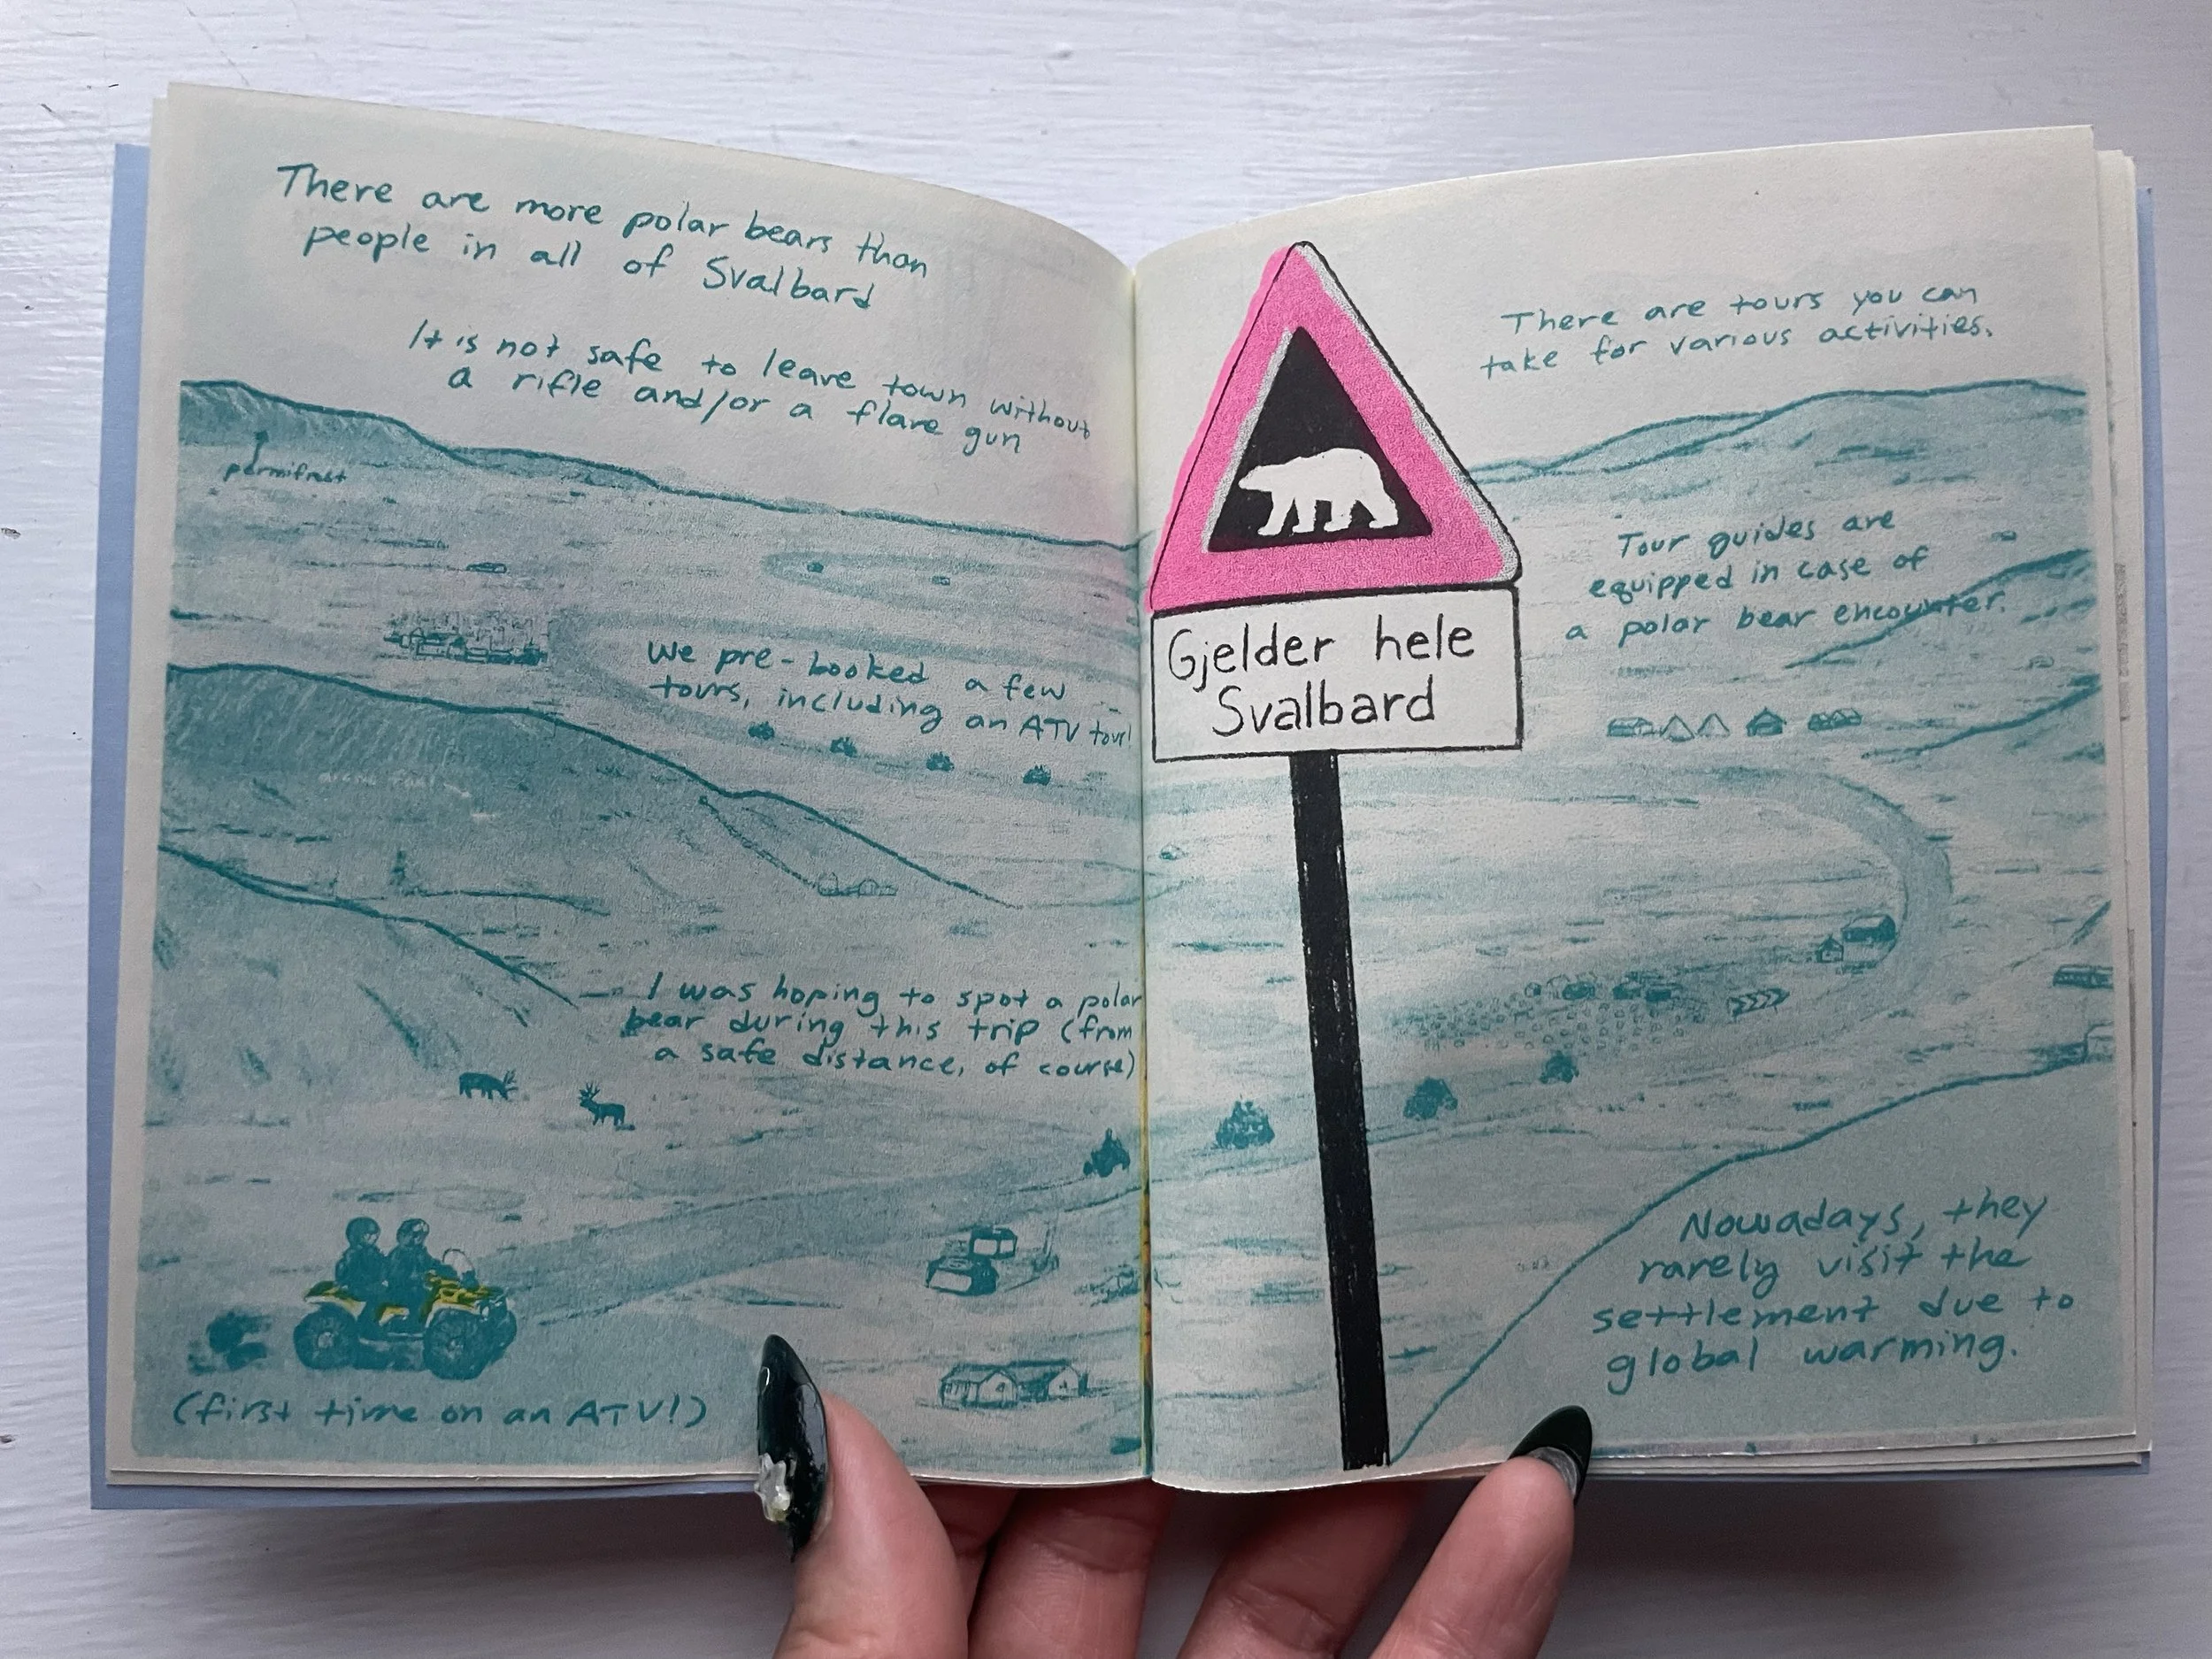 There are more polar bears than
people in all of Svalbard
It is not safe to leave town without
a rifle and/or a flare gun
permifrost
We pre-booked a few
tours, including an ATV tour!
arctic
I was hoping to spot a polar
bear during this trip (from
a safe distance, of course)
(first time on an ATV!)
Gjelder hele
Svalbard
There are tours you can
take for various activities.
Tour guides are
equipped in case of
a polar bear encounter.
Nowadays, they
rarely visit the
settlement due to
global warming.